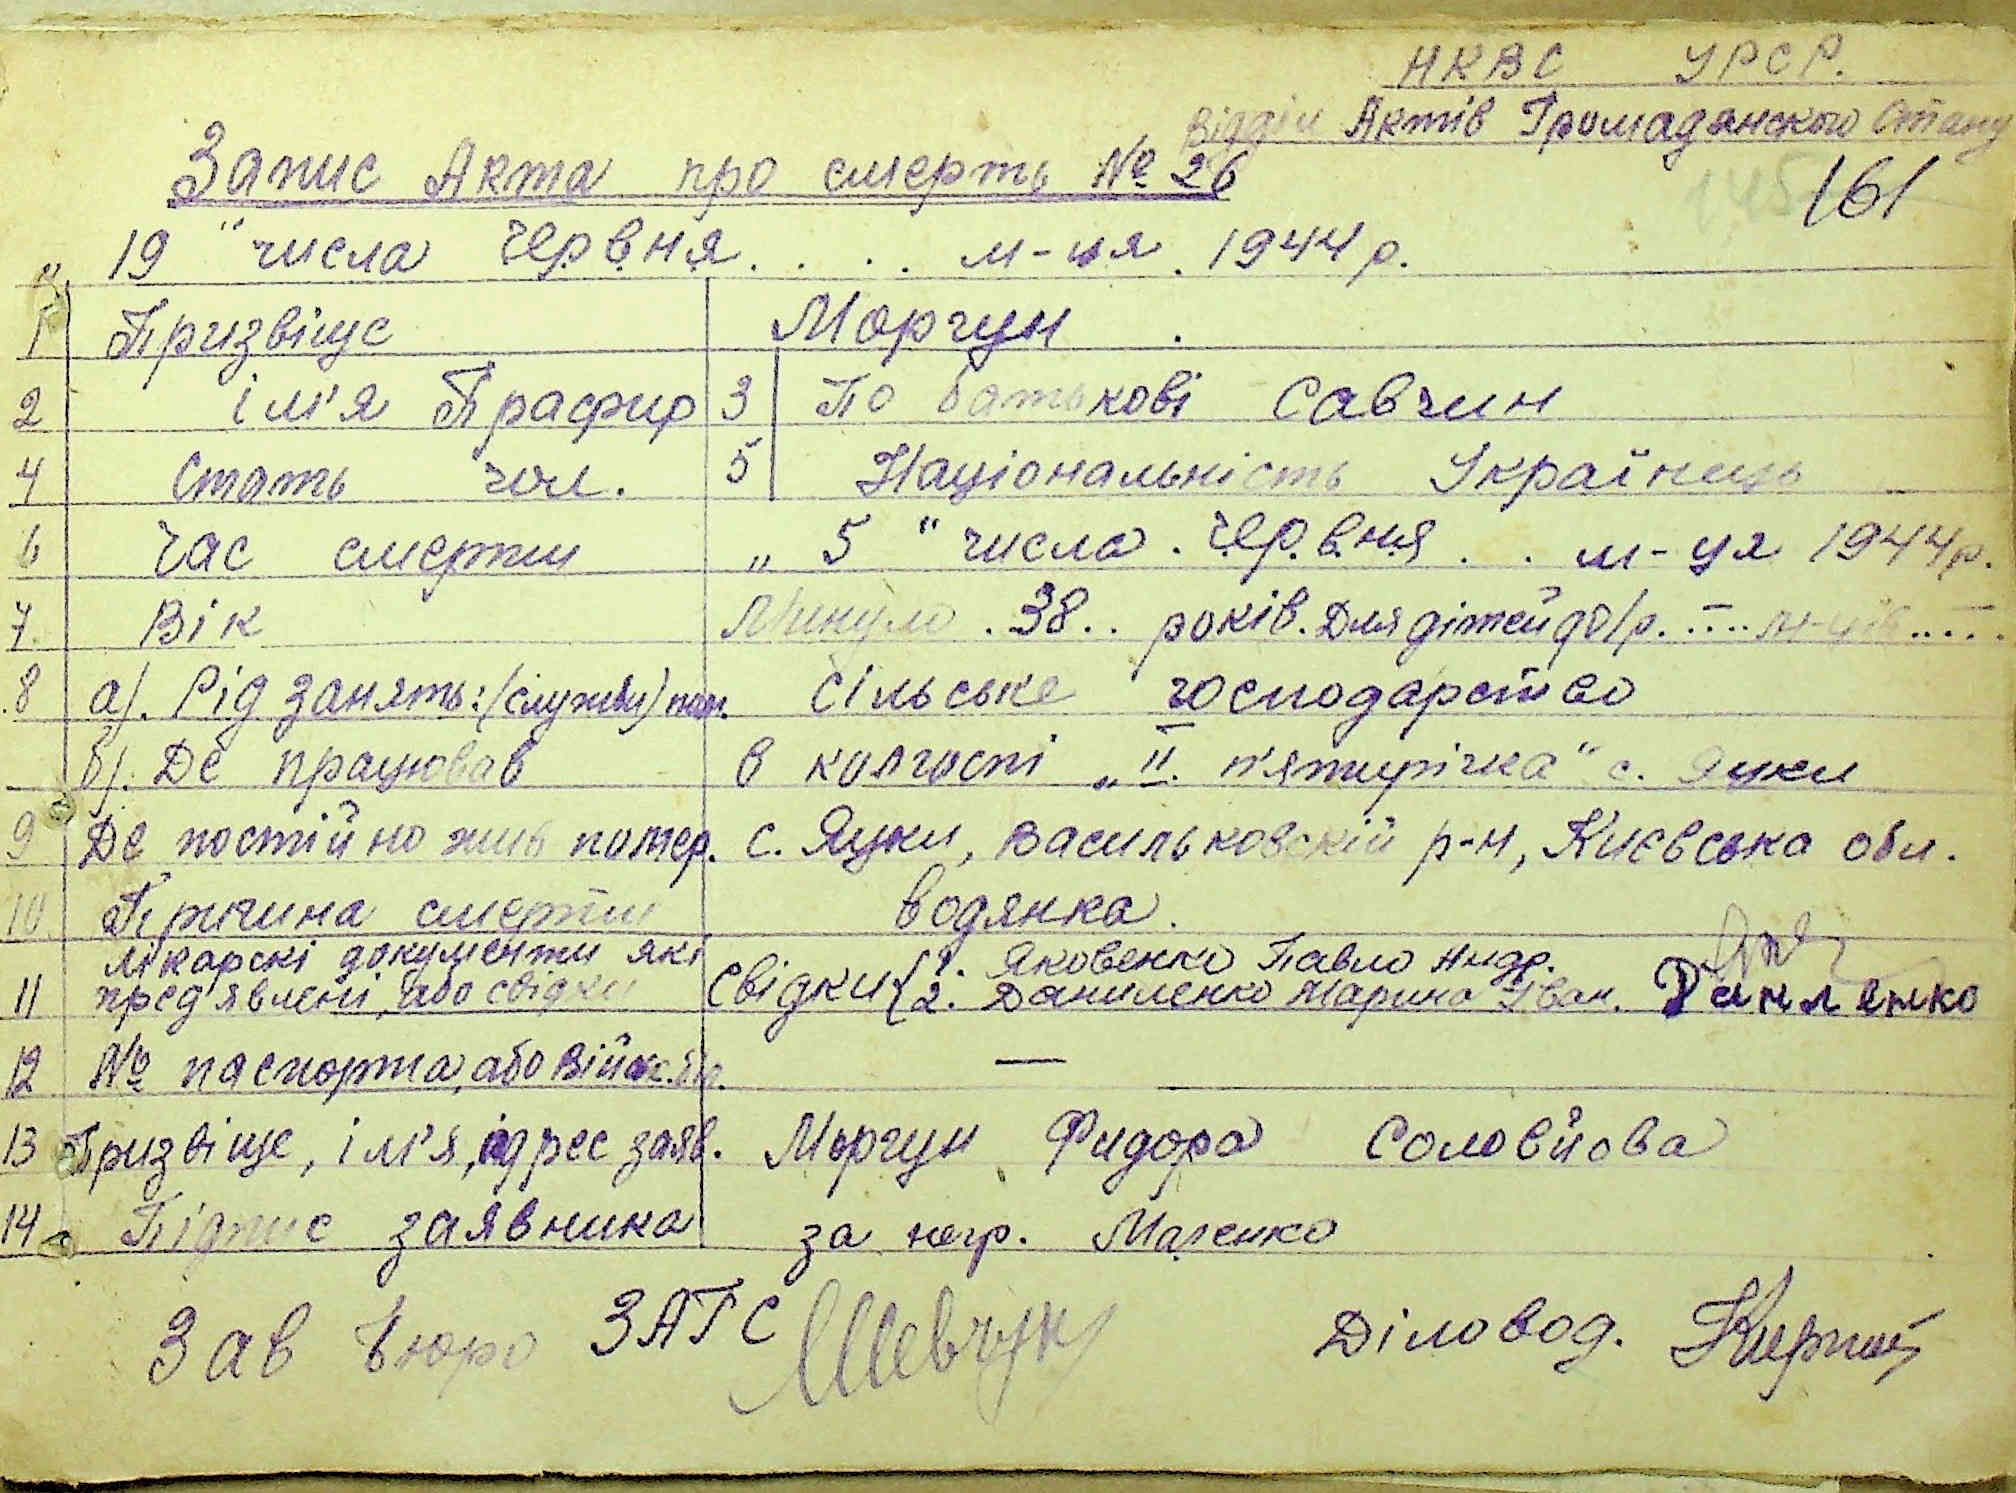 НКВС УРСР.
Відділ Актів Громадянского Стану
Запис Акта про смерть № 26
161
„ 19 " числа Червня . . . . м-ця . 1944 р.
1 Призвіще Моргун .
2 ім'я Прафир 3 По батькові Савчин
4 Стать чол. 5 Національність Українець
6 Час смерти „ 5 " числа . Червня . . м-ця 1944 р.
7. Вік Минуло . 38 . . років. Для дітей до 1 р. .... м-ців .....
8 а). Рід занять: (служби) пом. Сільське господарство
б). Де працював в колгоспі „II. п'ятирічка" с. Яцки
9 Де постійно жив помер. с. Яцки, Васильковскій р-н, Києвська обл.
10 Причина смерти водянка.
11 Лікарскі документи які
пред'явлені, або свідки Свідки { 1. Яковенко Павло Андр.
2. Даниленко Марина Іван. Данленко
12 № паспорта, або Військ. бил. —
13 Призвіще, ім'я, адрес заяв. Моргун Фидора Соловйова
14 Підпис заявника за негр.
Зав Бюро ЗАГС Шевчук Діловод.